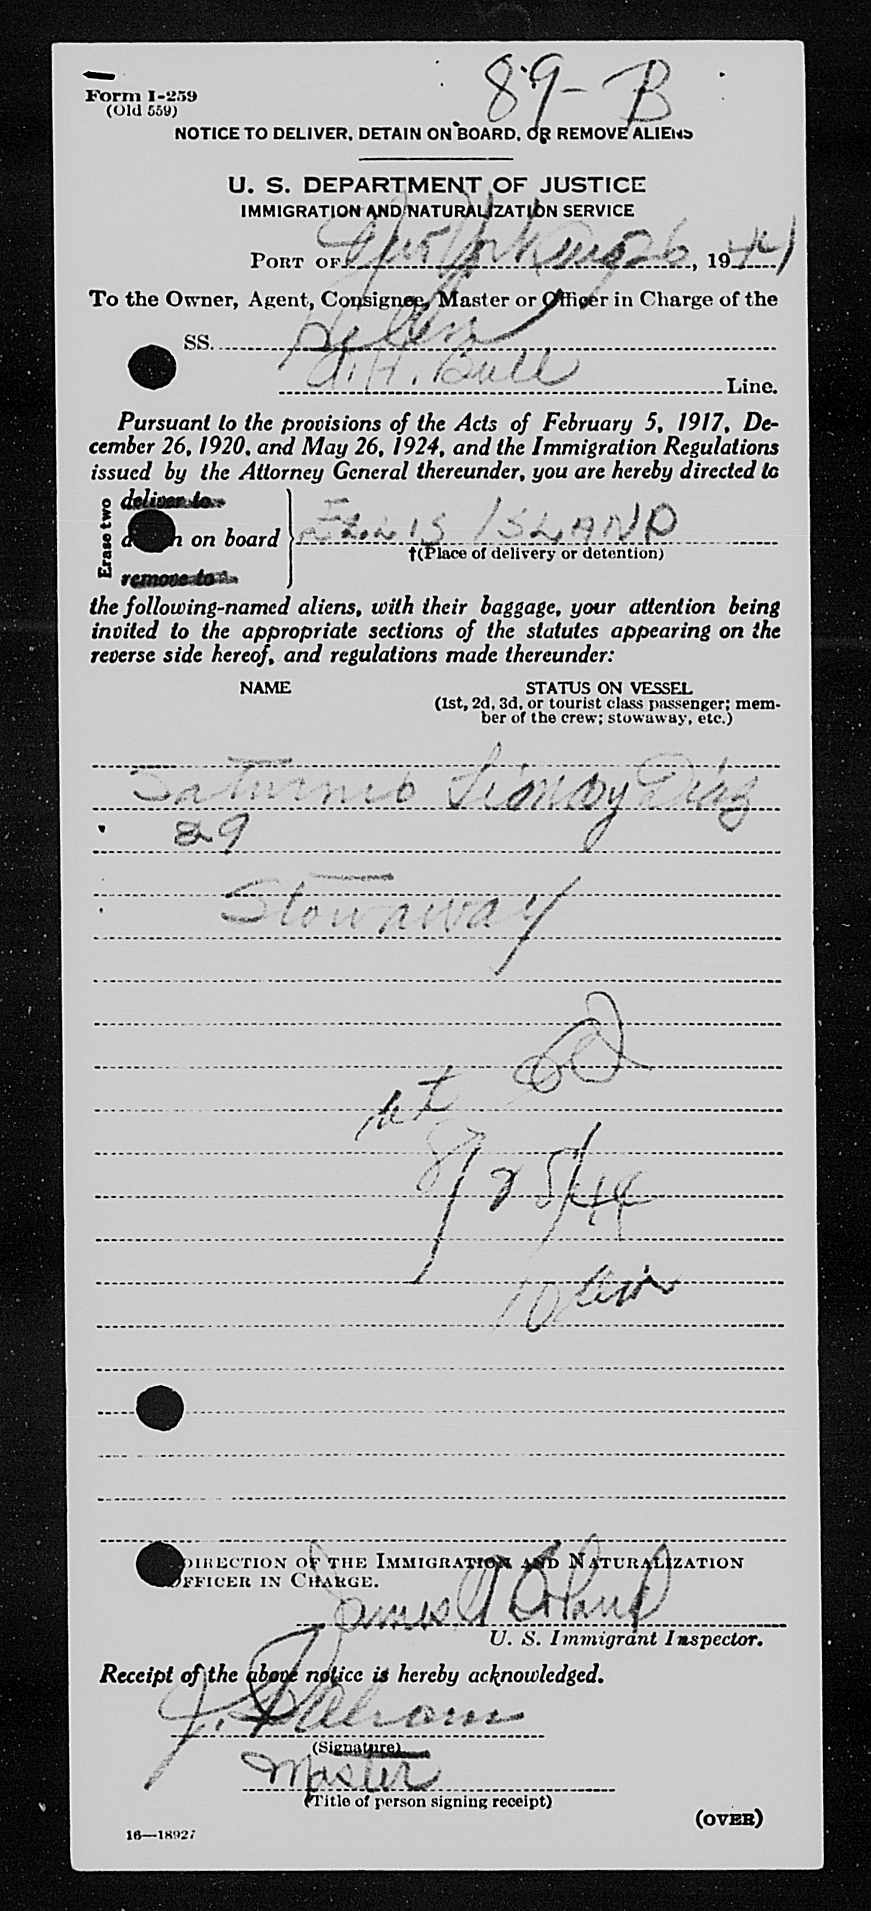 89-B
Form I-259
(Old 559)
NOTICE TO DELIVER, DETAIN ON BOARD, OR REMOVE ALIENS
U. S. DEPARTMENT OF JUSTICE
IMMIGRATION AND NATURALIZATION SERVICE
PORT OF New York Aug 26, 1944
To the Owner, Agent, Consignee, Master or Officer in Charge of the
SS. Helen
A. H. Bull Line.
Pursuant to the provisions of the Acts of February 5, 1917, De-
cember 26, 1920, and May 26, 1924, and the Immigration Regulations
issued by the Attorney General thereunder, you are hereby directed to
Erase two
deliver to
on board ELLIS ISLAND
†(Place of delivery or detention)
remove to
the following-named aliens, with their baggage, your attention being
invited to the appropriate sections of the statutes appearing on the
reverse side hereof, and regulations made thereunder:
NAME STATUS ON VESSEL
(1st, 2d, 3d, or tourist class passenger; mem-
ber of the crew; stowaway, etc.)
Saturnio Diaz
29
Stowaway
at
8/25/44
10
DIRECTION OF THE IMMIGRATION AND NATURALIZATION
OFFICER IN CHARGE.
James
U. S. Immigrant Inspector.
Receipt of the above notice is hereby acknowledged.
J.
(Signature)
Master
(Title of person signing receipt)
16—18927
(OVER)